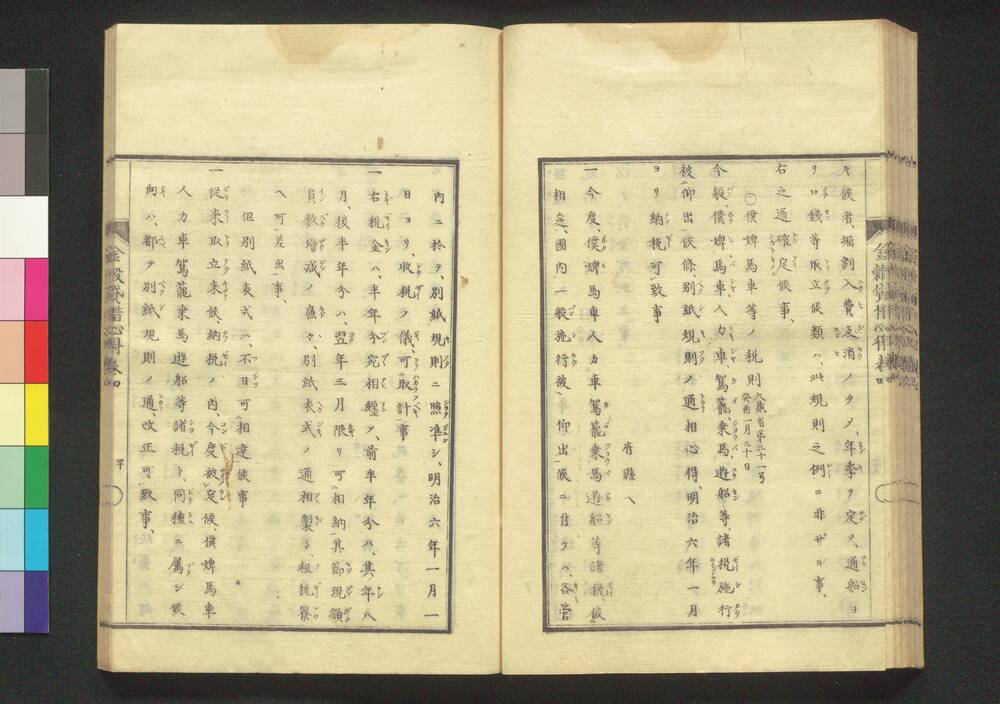 キ候者、堀割入費支消ノタメ、年季ヲ定メ、通船ヨ
リ口錢等取立候類ハ、此規則之例ニ非ザル事、
右之通確定候事、
○僕婢馬車等ノ税則 大蔵省第三十一号 癸酉一月三十日
今般、僕婢、馬車、人力車、駕籠、乗馬、遊船等、諸税施行
被仰出候條、別紙規則ノ通相心得、明治六年一月
ヨリ納税可致事
府縣ヘ
一今度、僕婢馬車人力車駕籠乗馬遊船等諸税、被
相定、國内一般施行被仰出候ニ付テハ、各管
内ニ於テ、別紙規則ニ照準シ、明治六年一月一
日ヨリ、收税ノ儀、可取計事
一右税金ハ、半年分宛相纏メ、前半年分ハ、其年八
月、後半年分ハ、翌年三月限リ可相納、其節現額
員数増減ノ廉々、別紙表式ノ通相製シ、租税寮
ヘ可差出事、
但別紙表式ハ、不日可相達候事
一従来取立来候納税ノ内、今度被定候、僕婢馬車
人力車駕籠乗馬遊船等諸税ト、同種ニ属シ候
向ハ、都テ別紙規則ノ通改正可致事、
金穀貸借心得 巻四